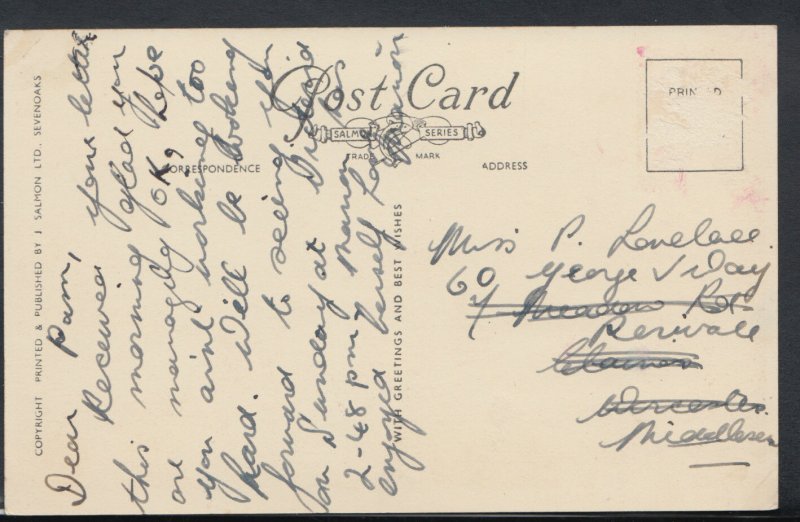 COPYRIGHT PRINTED & PUBLISHED BY J SALMON LTD., SEVENOAKS
Post Card
SALMON SERIES
TRADE MARK
CORRESPONDENCE
ADDRESS
WITH GREETINGS AND BEST WISHES
Dear Pam,
Received your letter
this morning glad you
are managing OK, hope
you aint working too
hard. Will be looking
forward to seeing you
on Sunday at
2-48 pm
enjoyed herself
Miss P. Lovelace.
60 George V Way
7 Meadow Rd
Perivale
Claines
Worcester
Middlesex